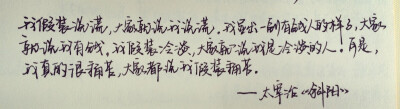 我假装流氓，大家就说我流氓。我冒出一副有钱人的样子，大家
就说我有钱，我假装冷淡，大家就说我是冷淡的人。可是，
我真的很痛苦，大家都说我假装痛苦。
——太宰治《斜阳》